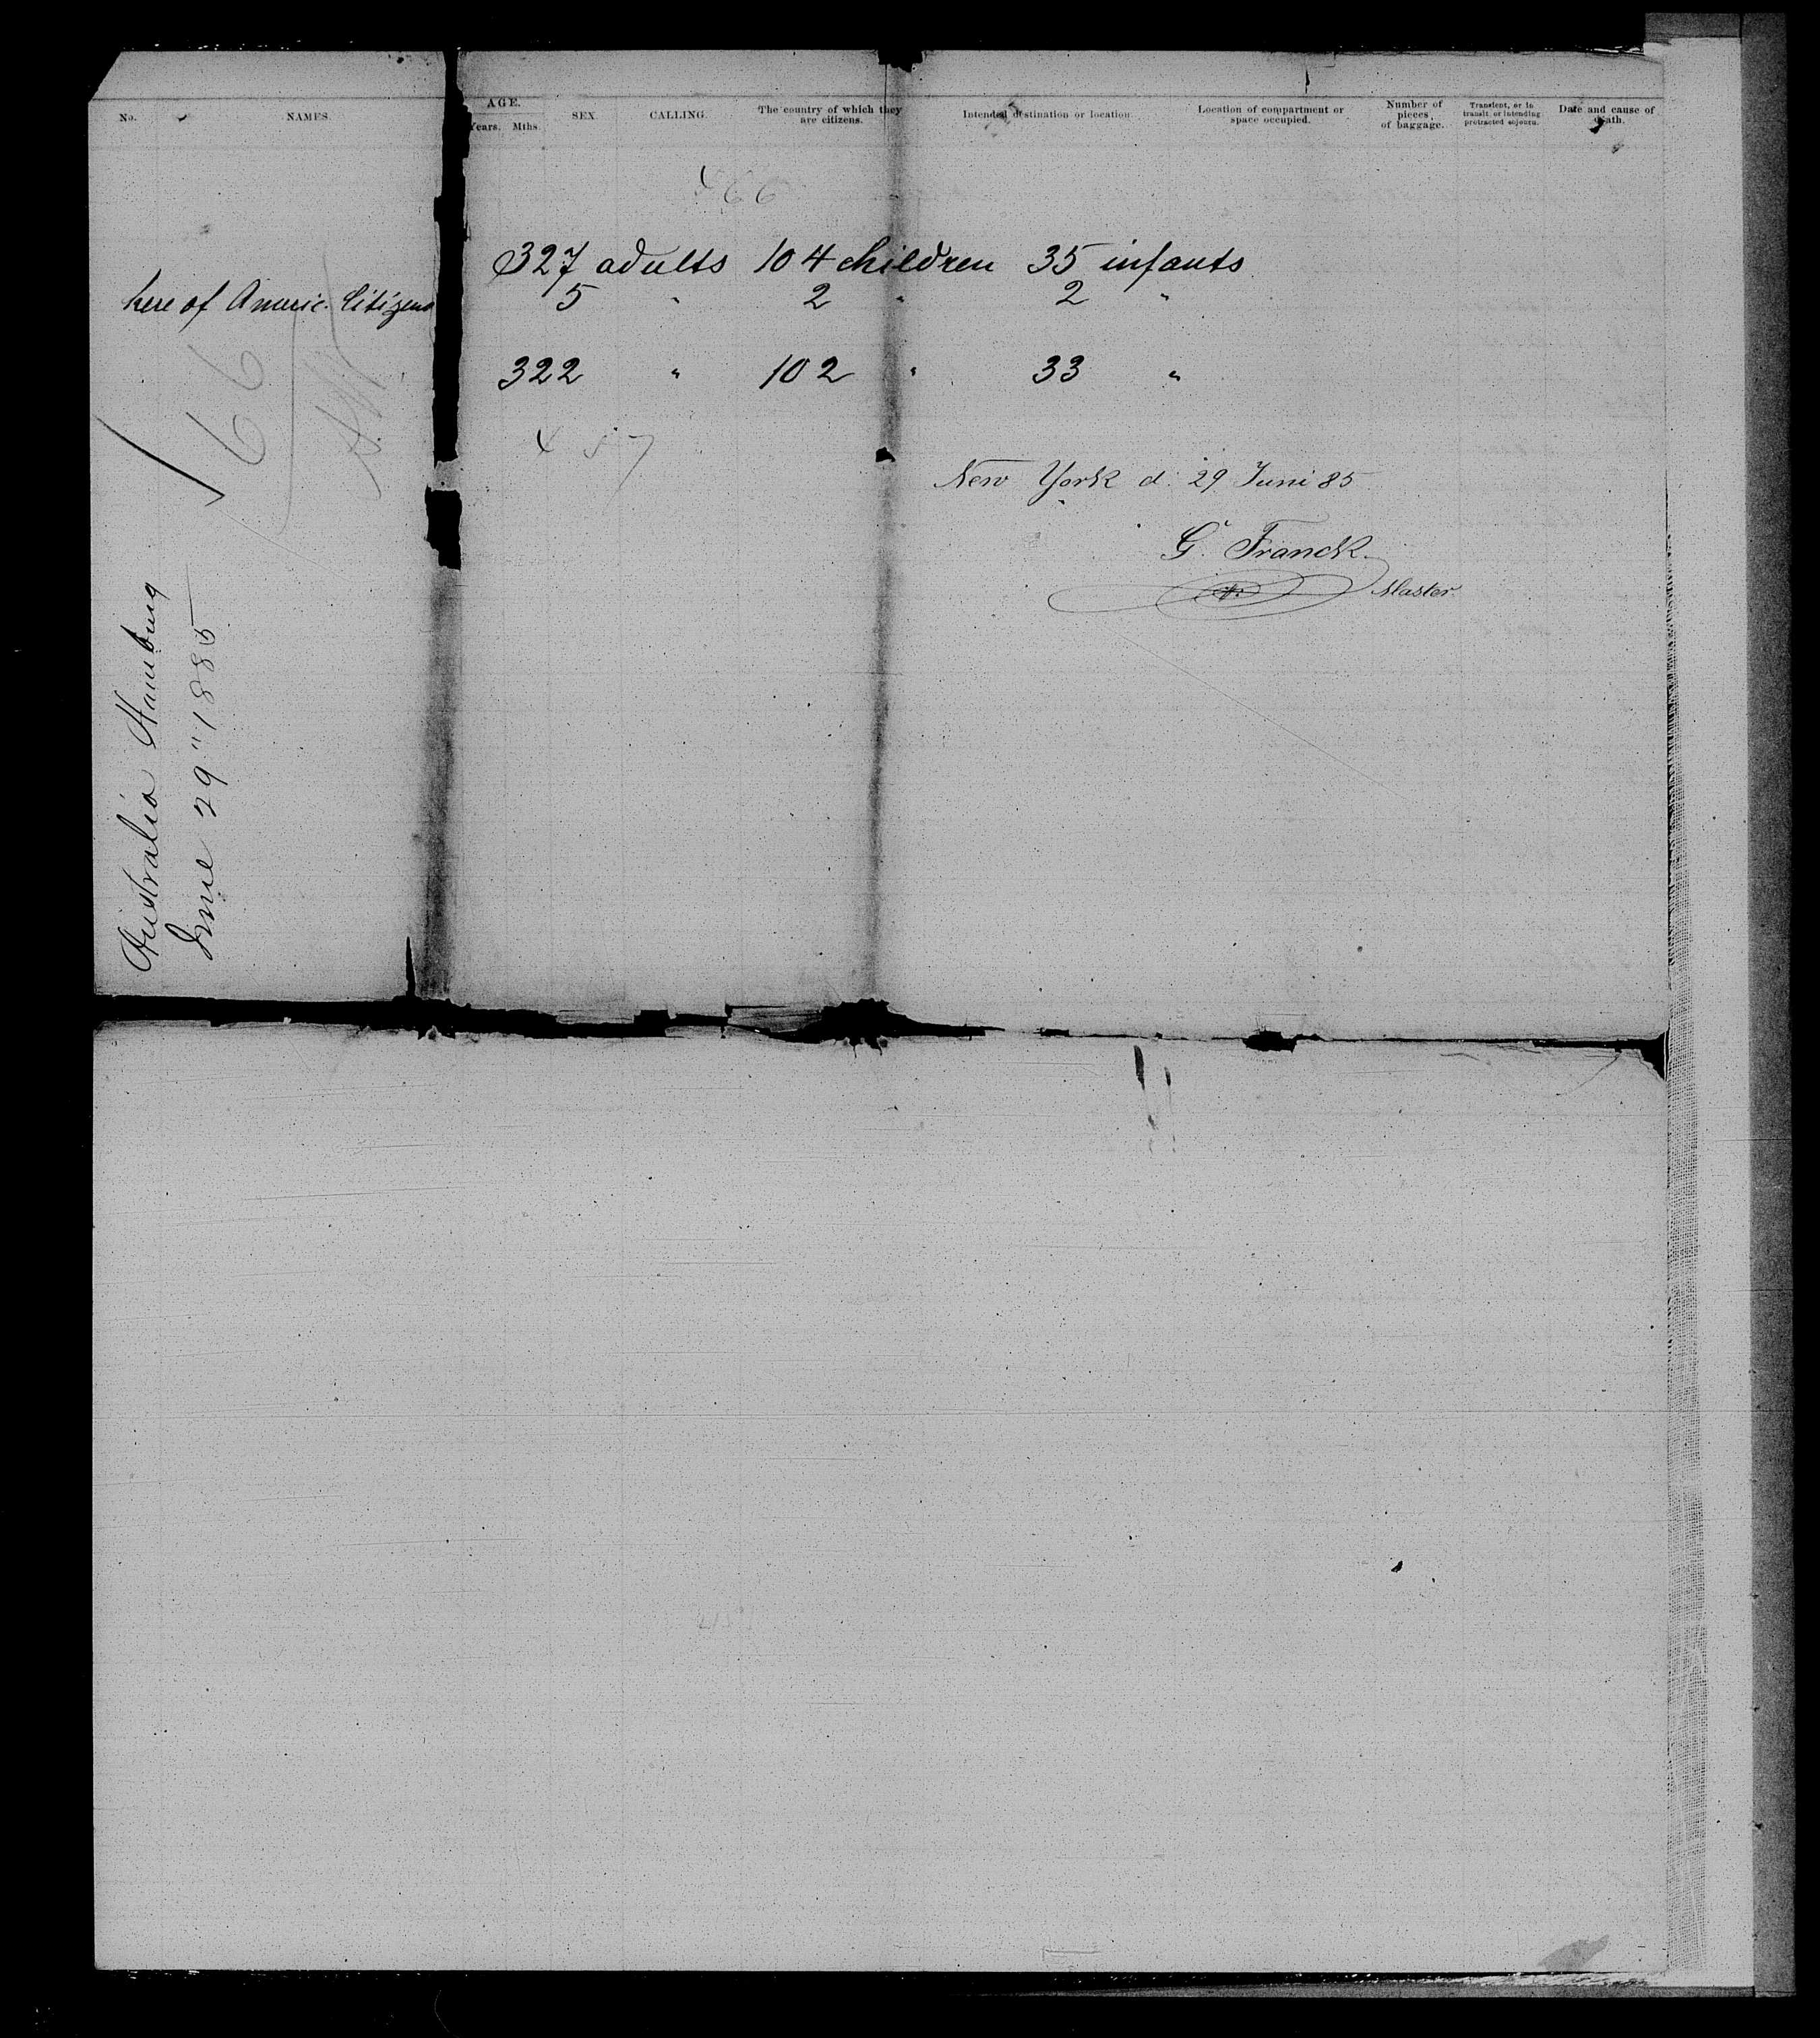 No. NAMES. AGE. Years. Mths. SEX. CALLING. The country of which they are citizens. Intended destination or location. Location of compartment or space occupied. Number of pieces of baggage. Transient, or in transit, or intending protracted sojourn. Date and cause of death.
466
327 adults 104 children 35 infants
here of Americ. Citizens 5 " 2 " 2 "
322 " 102 " 33 "
457
New York d. 29 Juni 85
G. Franck
Master
66
Australia Hamburg
June 29" 1885